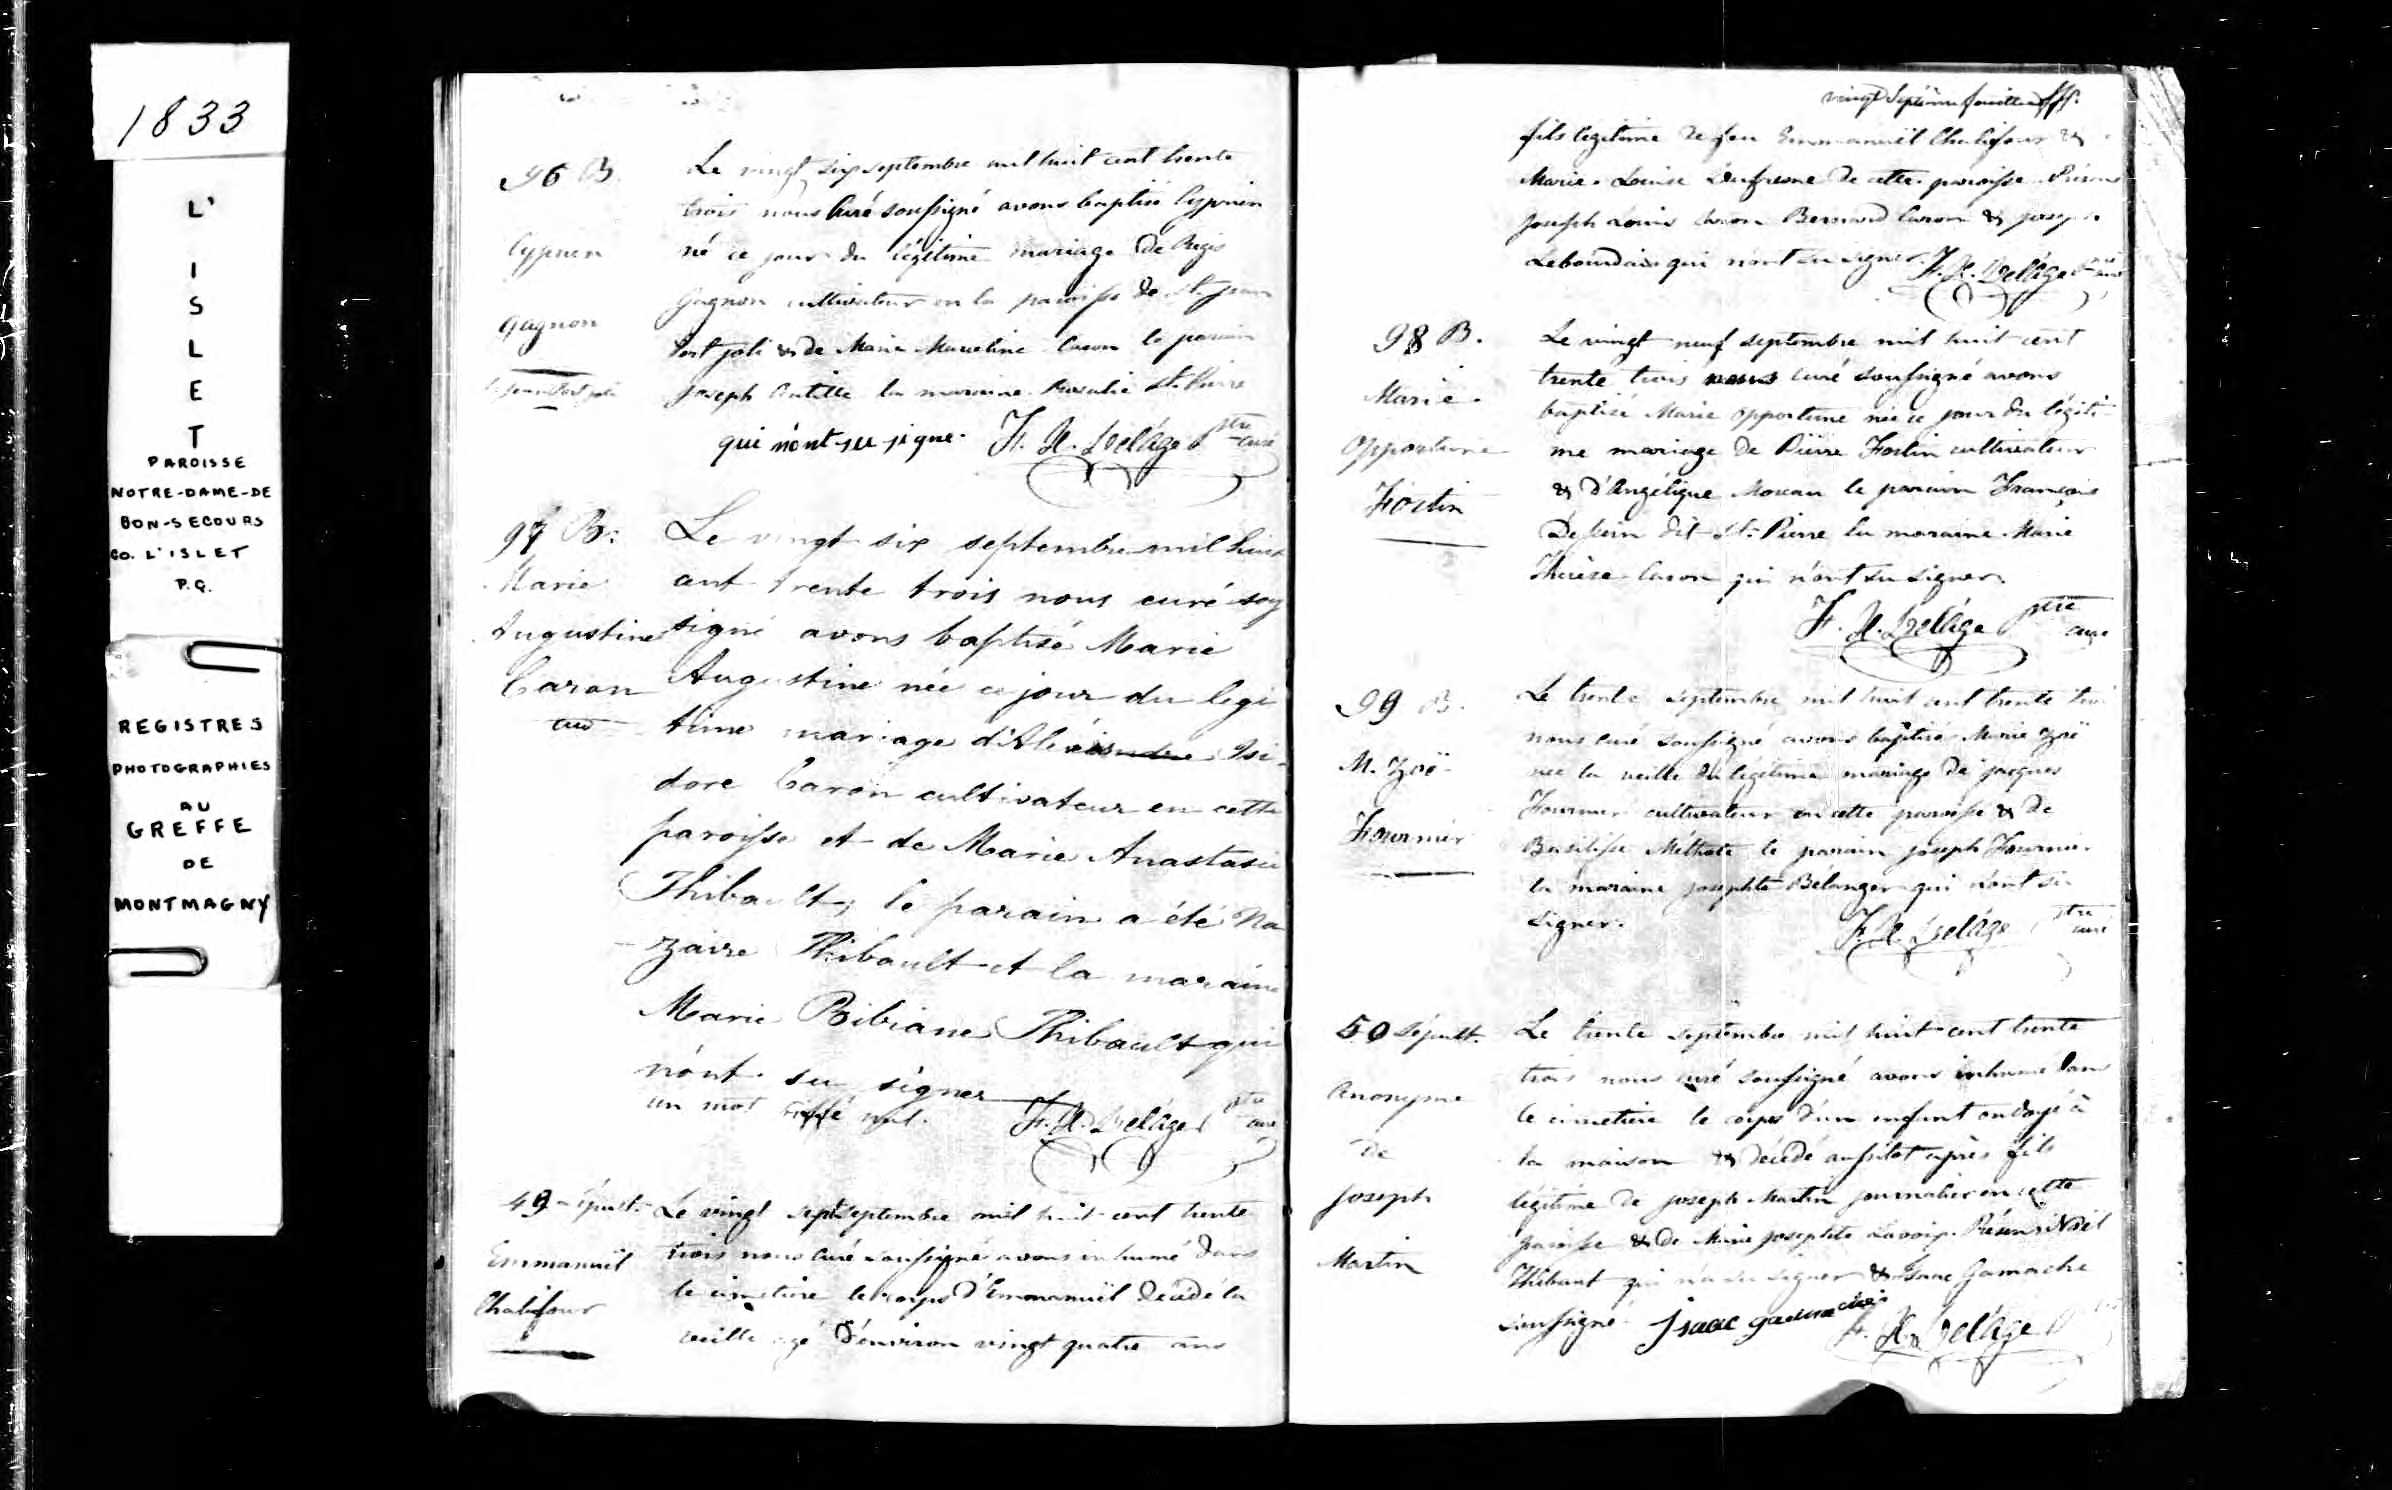 1833
L'
I
S
L
E
T
PAROISSE
NOTRE-DAME-DE
BON-SECOURS
CO. L'ISLET
P.Q.
REGISTRES
PHOTOGRAPHIES
AU
GREFFE
DE
MONTMAGNY
96 B.
Cyprien
Gagnon
Le vingt six septembre mil huit cent trente
trois nous Curé soussigné avons baptisé Cyprien
né ce jour du légitime mariage de Régis
Gagnon cultivateur en la paroisse de St. Jean
Port joli & de Marie Marceline Caron le parain
Joseph la maraine Rosalie St. Pierre
qui n'ont su signe. F. X. Delâge Ptre curé
97 B.
Marie
Augustine
Caron
Le vingt six septembre mil huit
cent trente trois nous curé sous
signé avons baptisé Marie
Augustine née ce jour du legi
time mariage d'Alexandre Isi-
dore Caron cultivateur en cette
paroisse et de Marie Anastasie
Thibault; le parain a été Na
zaire Thibault et la maraine
Marie Bibiane Thibault qui
n'ont su signer
un mot riffé nul. F. X. Delâge Ptre curé
49 Sépult.
Emmanuël
Chalifour
Le vingt sept septembre mil huit cent trente
trois nous Curé soussigné avons inhumé dans
le cimetière le corps d'Emmanuël décédé la
veille agé d'environ vingt quatre ans
vingt septième feuillet
fils légitime de feu Emmanuël Chalifour &
Marie Louise Dufresne de cette paroisse. Présens
Joseph Louis Caron Bernard Caron & Joseph
Lebourdais qui n'ont su signer. F. X. Delâge Ptre curé
98 B.
Marie
Opportune
Fortin
Le vingt neuf septembre mil huit cent
trente trois nous curé soussigné avons
baptisé Marie Opportune née ce jour du légiti
me mariage de Pierre Fortin cultivateur
& d'Angélique Moreau le parain François
Dessein dit St. Pierre la maraine Marie
Thérèse Caron qui n'ont su signer.
F. X. Delâge Ptre curé
99 B.
M. Zoë
Fournier
Le trente septembre mil huit cent trente trois
nous curé soussigné avons baptisé Marie Zoë
née la veille du légitime mariage de Jacques
Fournier cultivateur en cette paroisse & de
Basilisse Méthote le parain Joseph Fournier
la maraine Josephte Bélanger qui n'ont su
signer. F. X. Delâge Ptre curé
50 Sépult.
Anonyme
de
Joseph
Martin
Le trente septembre mil huit cent trente
trois nous curé soussigné avons inhumé dans
le cimetière le corps d'un enfant ondoyé à
la maison & décédé aussitot après fils
légitime de Joseph Martin journalier en cette
paroisse & de Marie Josephte Lavoie. Présens Noël
Thibaut qui n'a su signer & Isaac Gamache
soussigné. Isaac gamache
F. X. Delâge Ptre